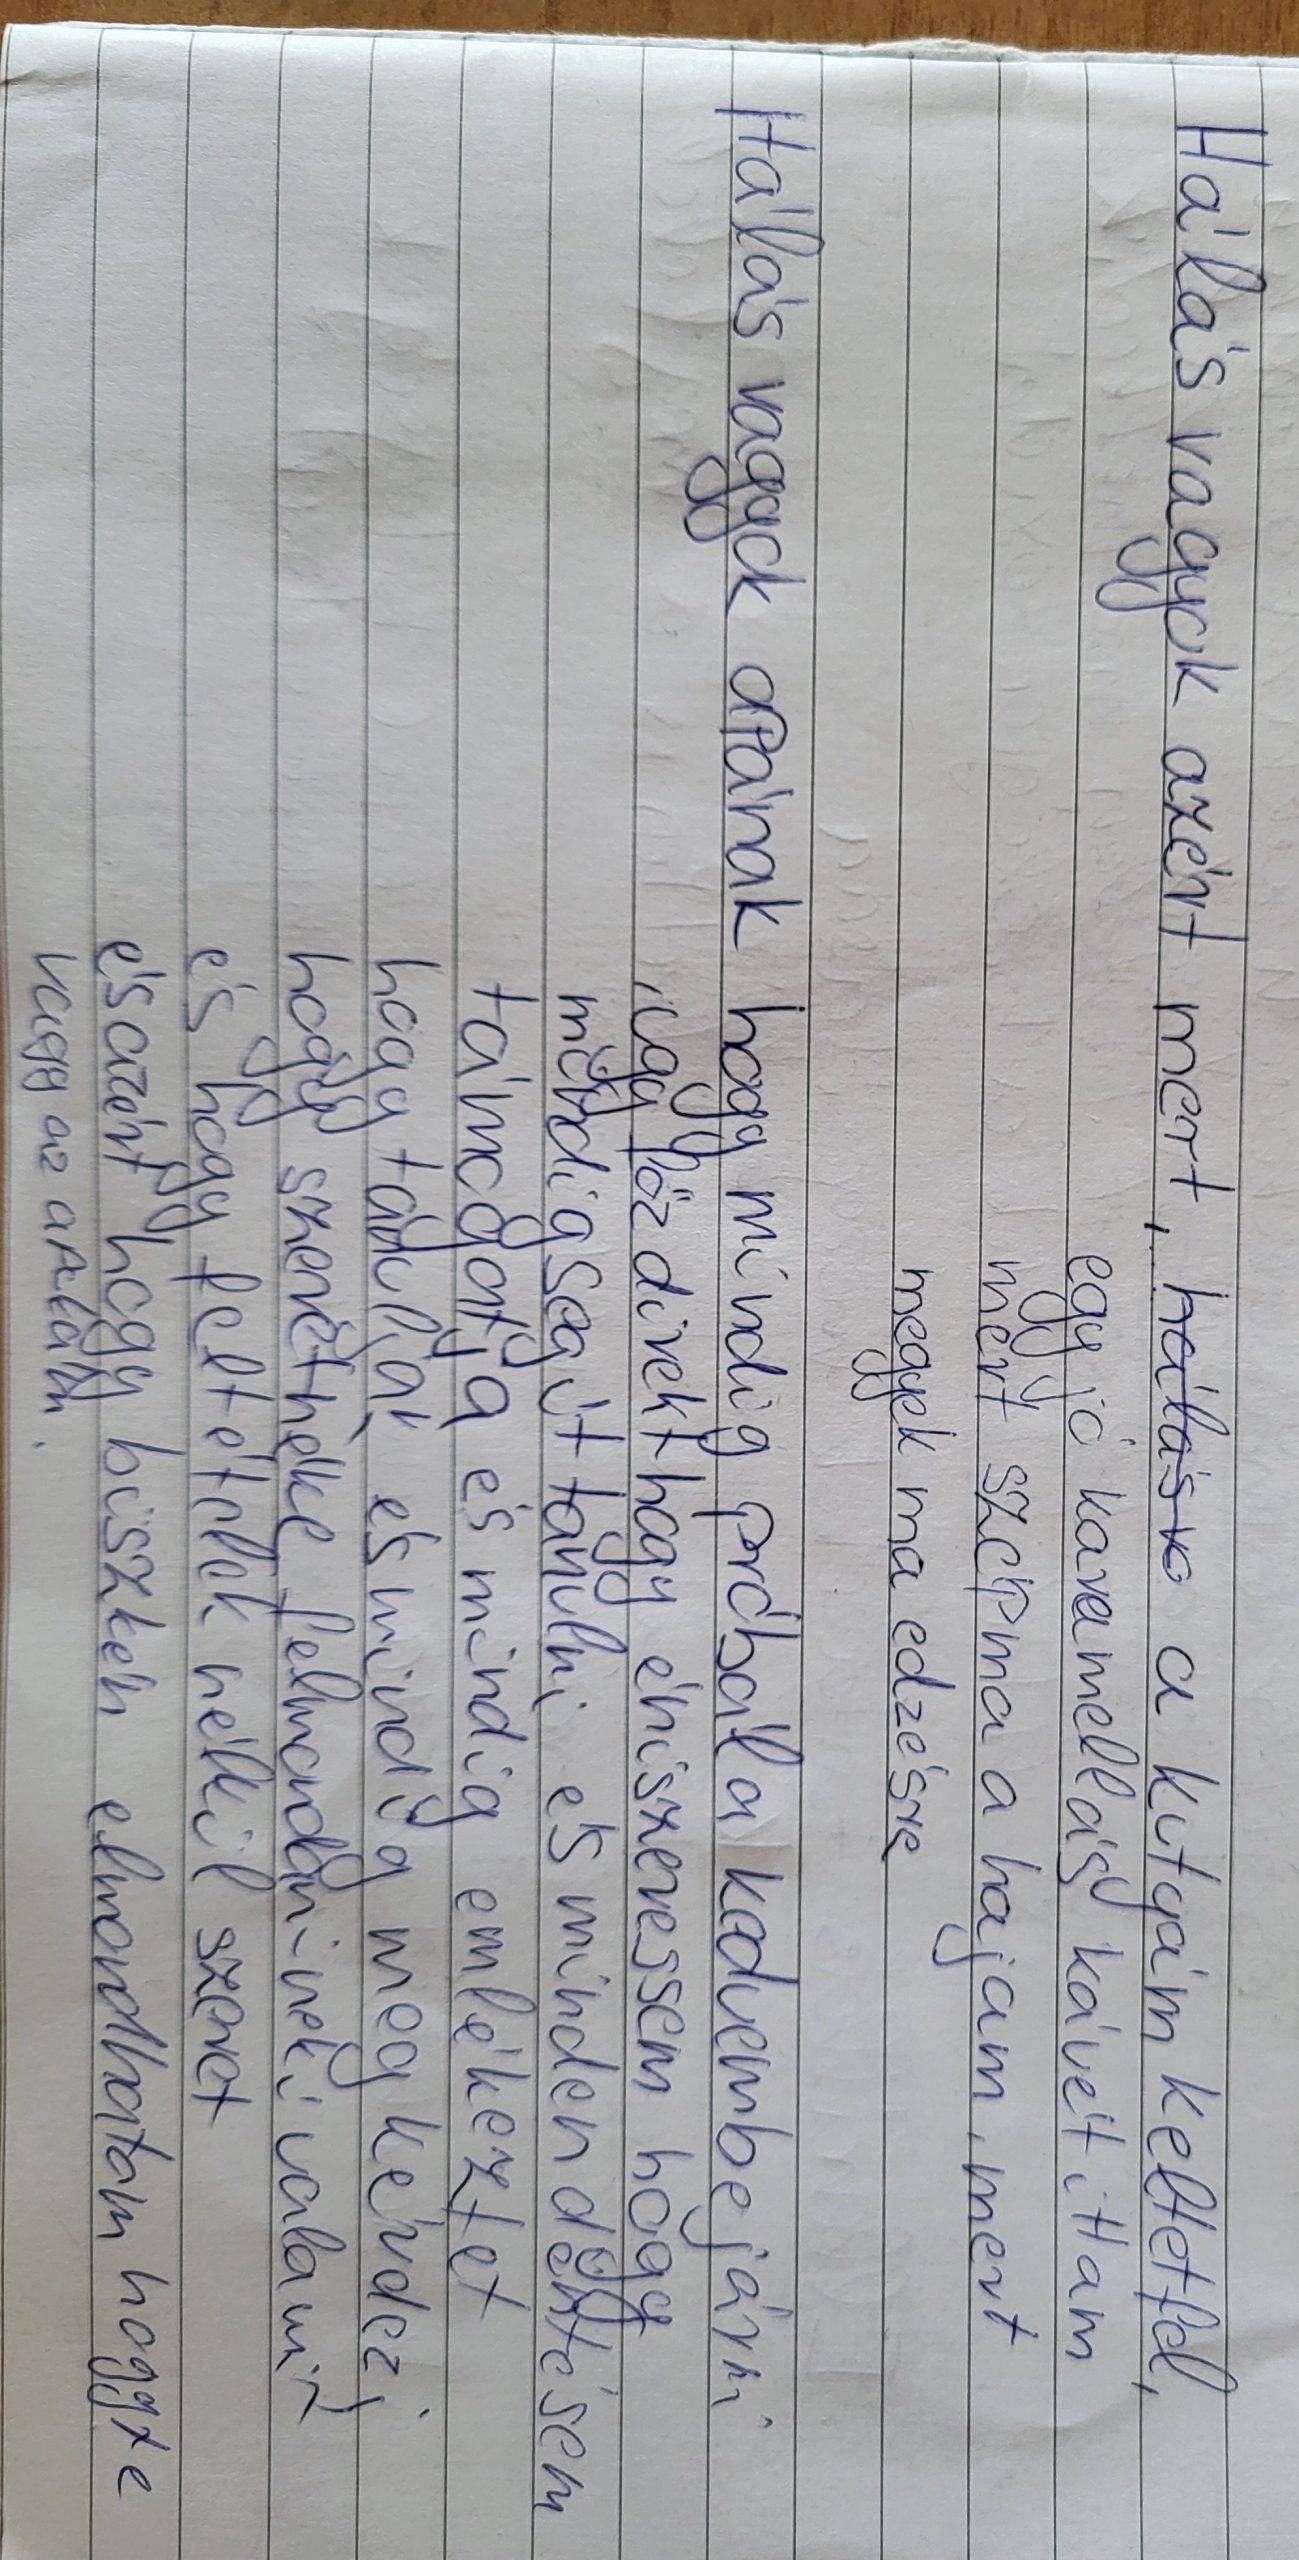 Hálás vagyok azért mert, hálásv a kutyám keltetfel,
egy jó karamellás kávét ittam
mert szép ma a hajam, mert
megyek ma edzésre
Hálás vagyok apának hogy mindig próbála kedvembe járni
úgy főz direkt hogy én is szeressem hogy
mindig segít tanulni és minden döntésem
támogatja és mindig emlékeztet
hogy tanuljak és mindig meg kérdezi
hogy szeretnék-e felmondani neki valamit
és hogy feltételek nélkül szeret
és azért hogy büszkén elmondhatom hogy te
vagy az apám.